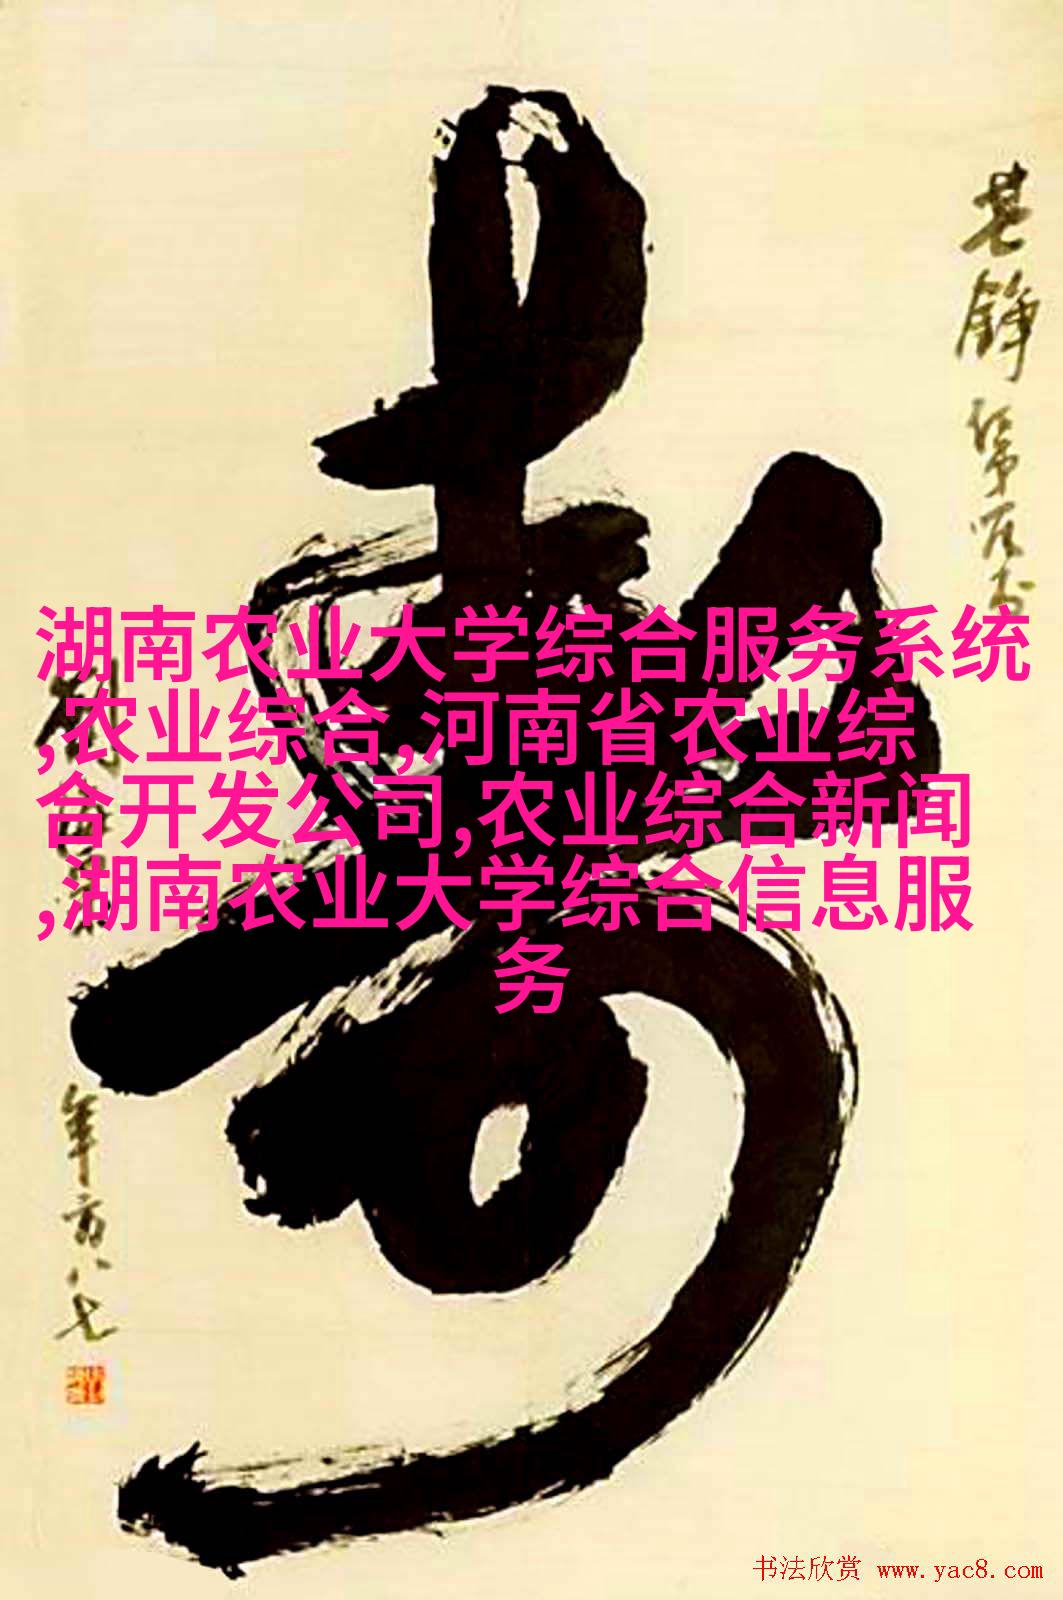 寿
其铮笔百书
湖南农业大学综合服务系统
,农业综合,河南省农业综
合开发公司,农业综合新闻
,湖南农业大学综合信息服
务
年方八七
书法欣赏 www.yac8.com